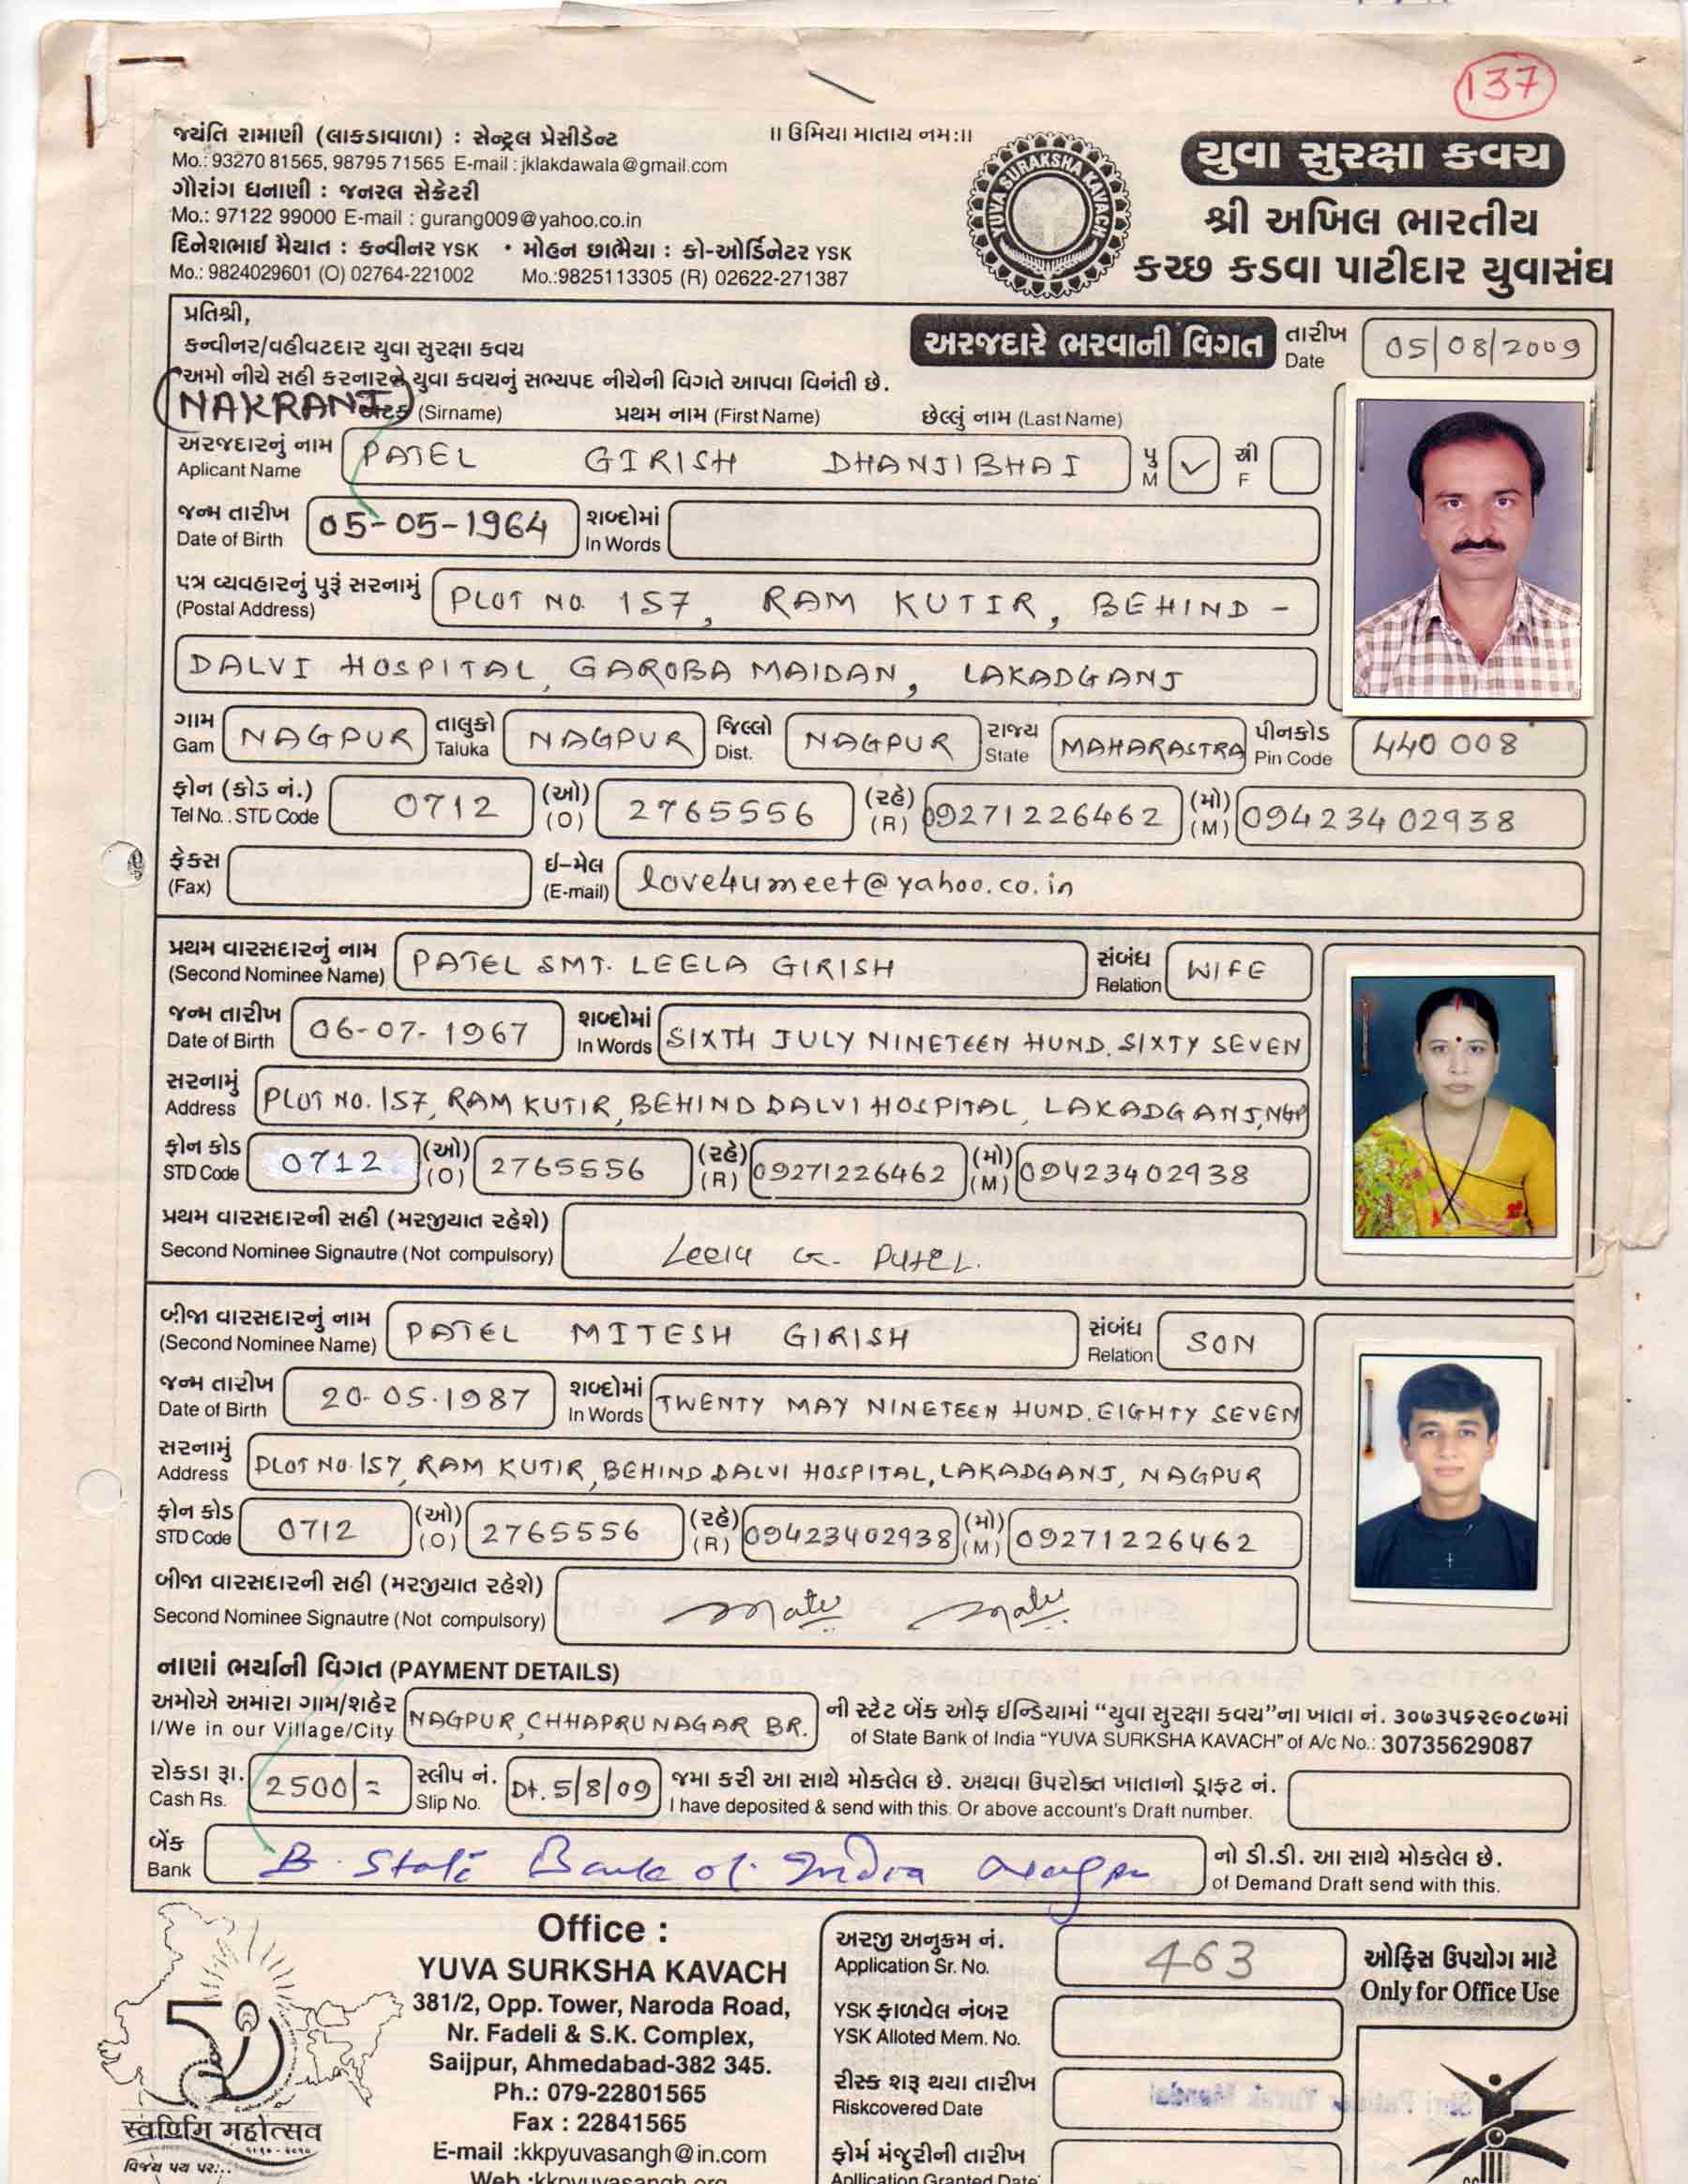 137
જયંતિ રામાણી (લાકડાવાળા) : સેન્ટ્રલ પ્રેસીડેન્ટ
Mo.: 93270 81565, 98795 71565 E-mail : jklakdawala@gmail.com
ગૌરાંગ ધનાણી : જનરલ સેક્રેટરી
Mo.: 97122 99000 E-mail : gurang009@yahoo.co.in
દિનેશભાઈ મૈયાત : કન્વીનર YSK • મોહન છાભૈયા : કો-ઓર્ડિનેટર YSK
Mo.: 9824029601 (O) 02764-221002 Mo.:9825113305 (R) 02622-271387
॥ ઉમિયા માતાય નમઃ॥
YUVA SURAKSHA KAVACH
યુવા સુરક્ષા કવચ
શ્રી અખિલ ભારતીય
કચ્છ કડવા પાટીદાર યુવાસંઘ
પ્રતિશ્રી,
કન્વીનર/વહીવટદાર યુવા સુરક્ષા કવચ
અરજદારે ભરવાની વિગત
તારીખ
Date 05/08/2009
અમો નીચે સહી કરનારને યુવા કવચનું સભ્યપદ નીચેની વિગતે આપવા વિનંતી છે.
NAKRANI (Sirname) પ્રથમ નામ (First Name) છેલ્લું નામ (Last Name)
અરજદારનું નામ
Aplicant Name PATEL GIRISH DHANJIBHAI પુ M ✓ સ્ત્રી F
જન્મ તારીખ
Date of Birth 05-05-1964 શબ્દોમાં In Words
પત્ર વ્યવહારનું પુરૂં સરનામું
(Postal Address) PLOT NO. 157, RAM KUTIR, BEHIND -
DALVI HOSPITAL, GAROBA MAIDAN, LAKADGANJ
ગામ Gam NAGPUR તાલુકો Taluka NAGPUR જિલ્લો Dist. NAGPUR રાજ્ય State MAHARASTRA પીનકોડ Pin Code 440 008
ફોન (કોડ નં.)
Tel No. . STD Code 0712 (ઓ) (O) 2765556 (રહે) (R) 09271226462 (મો) (M) 09423402938
ફેક્સ (Fax) ઈ-મેલ (E-mail) love4umeet@yahoo.co.in
પ્રથમ વારસદારનું નામ
(Second Nominee Name) PATEL SMT. LEELA GIRISH સંબંધ Relation WIFE
જન્મ તારીખ
Date of Birth 06-07-1967 શબ્દોમાં In Words SIXTH JULY NINETEEN HUND. SIXTY SEVEN
સરનામું
Address PLOT NO. 157, RAM KUTIR, BEHIND DALVI HOSPITAL, LAKADGANJ, NGP
ફોન કોડ
STD Code 0712 (ઓ) (O) 2765556 (રહે) (R) 09271226462 (મો) (M) 09423402938
પ્રથમ વારસદારની સહી (મરજીયાત રહેશે)
Second Nominee Signautre (Not compulsory) Leela G. Patel.
બીજા વારસદારનું નામ
(Second Nominee Name) PATEL MITESH GIRISH સંબંધ Relation SON
જન્મ તારીખ
Date of Birth 20-05-1987 શબ્દોમાં In Words TWENTY MAY NINETEEN HUND. EIGHTY SEVEN
સરનામું
Address PLOT NO. 157, RAM KUTIR, BEHIND DALVI HOSPITAL, LAKADGANJ, NAGPUR
ફોન કોડ
STD Code 0712 (ઓ) (O) 2765556 (રહે) (R) 09423402938 (મો) (M) 09271226462
બીજા વારસદારની સહી (મરજીયાત રહેશે)
Second Nominee Signautre (Not compulsory)
નાણાં ભર્યાની વિગત (PAYMENT DETAILS)
અમોએ અમારા ગામ/શહેર NAGPUR, CHHAPRUNAGAR BR. ની સ્ટેટ બેંક ઓફ ઈન્ડિયામાં “યુવા સુરક્ષા કવચ”ના ખાતા નં. ૩૦૭૩૫૬૨૯૦૮૭માં
I/We in our Village/City of State Bank of India “YUVA SURKSHA KAVACH” of A/c No.: 30735629087
રોકડા રૂા. Cash Rs. 2500/= સ્લીપ નં. Slip No. Dt. 5/8/09 જમા કરી આ સાથે મોકલેલ છે. અથવા ઉપરોક્ત ખાતાનો ડ્રાફ્ટ નં.
I have deposited & send with this. Or above account's Draft number.
બેંક Bank B. State Bank of India નો ડી.ડી. આ સાથે મોકલેલ છે.
of Demand Draft send with this.
Office :
YUVA SURKSHA KAVACH
381/2, Opp. Tower, Naroda Road,
Nr. Fadeli & S.K. Complex,
Saijpur, Ahmedabad-382 345.
Ph.: 079-22801565
Fax : 22841565
E-mail :kkpyuvasangh@in.com
Web :kkpyuvasangh.org
50
સ્વર્ણિમ મહોત્સવ
અરજી અનુક્રમ નં.
Application Sr. No. 463
ઓફિસ ઉપયોગ માટે
Only for Office Use
YSK ફાળવેલ નંબર
YSK Alloted Mem. No.
રીસ્ક શરૂ થયા તારીખ
Riskcovered Date
ફોર્મ મંજુરીની તારીખ
Apllication Granted Date